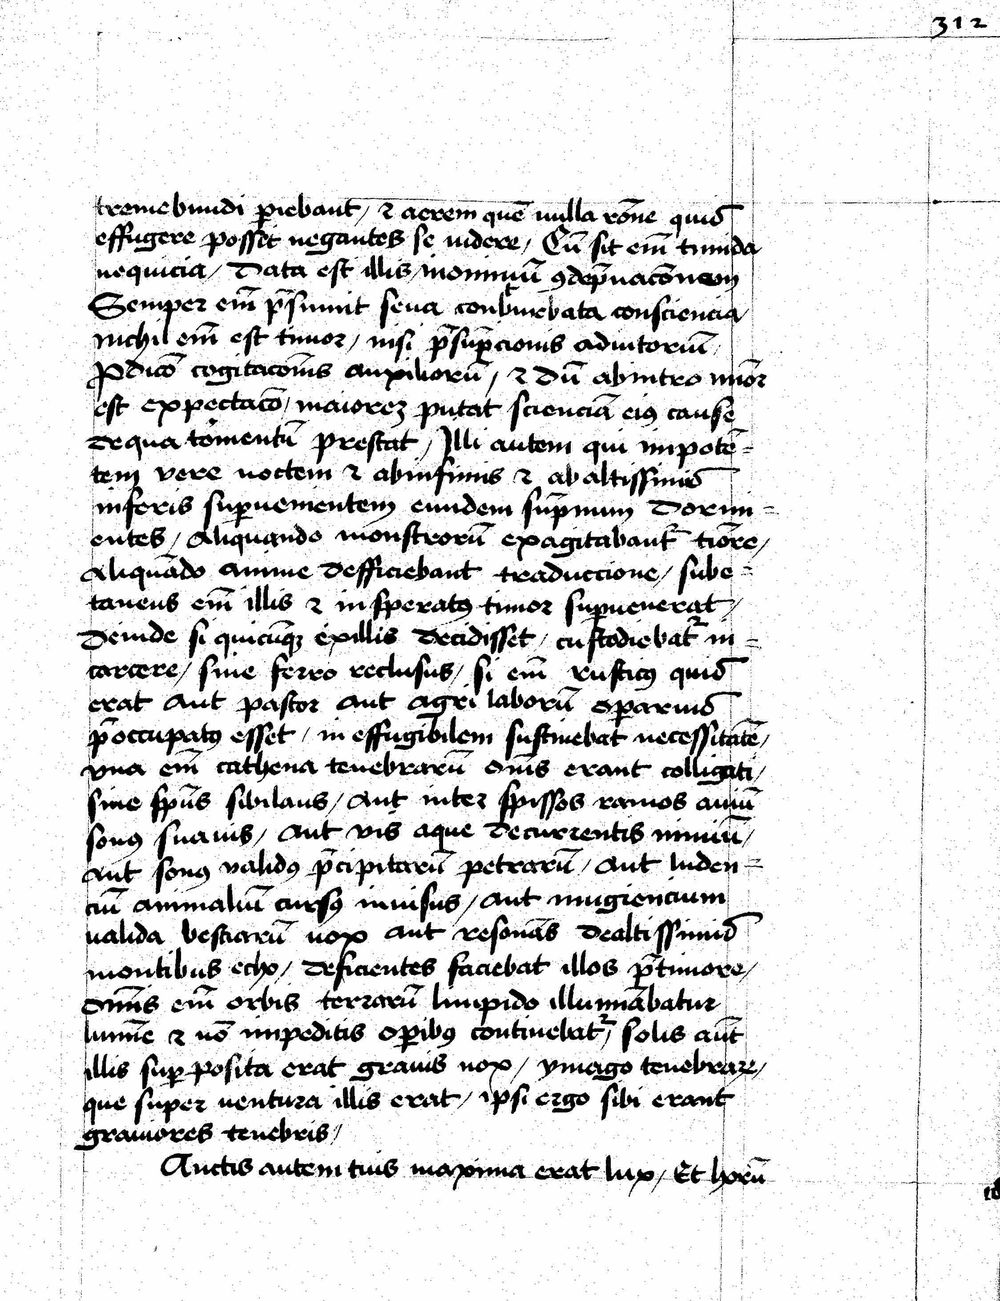 312
tremebundi ꝑiebant / ⁊ aerem quē nulla rōne quid̄
effugere posset negantes se uidere / Cū sit em̄ timida
nequicia / Data est illis
Semper em̄ p̄sumit seua conturbata consciencia /
Nichil em̄ est timor / nisi p̄supcionis aduitoriū /
Pdicō cogitacōnis auxiliorū / ⁊ dū abintro minor̄
est expectacō / maiorez putat scienciā eiꝯ cause
De qua tōmentū prestat / Illi autem qui impotē=
tem vere noctem ⁊ abinfimis ⁊ ab altissimis
inferis suꝑuenientem eundem sup̄mum Dormi=
entes / Aliquando monstrorū exagitabant᷑ tiōre /
Aliquādo anime defficiebant traduccione / sube=
taneus em̄ illis ⁊ insperatꝯ timor suꝑuenerat /
Deinde si quicūqꝫ exillis decidisset / custodiebat᷑ in=
carcere / sine ferro reclusus / si em̄ rusticꝯ quid̄
erat aut pastor aut agri laborū oꝑarius
p̄occupatꝯ esset / in effugibilem sustinebat necessitatē /
vna em̄ cathena tenebrarū om̄s erant colligati /
siue sp̄us sibilans / Aut inter spissos ramos auiū
sonꝯ suauis / Aut vis aque decurrentis nimiū /
Aut sonꝯ validꝯ p̄cipitatarū petrarū / Aut luden=
ciū animaliū cursꝯ inuisus / Aut mugiencium
ualida bestiarū uox aut resonās de altissimis
montibus echo / deficientes faciebat illos p̄ timore /
Om̄is em̄ orbis terrarū limpido illumīabatur
lumīe ⁊ nō impeditis oꝑibꝯ continebat᷑ / solis aūt
illis suꝑ posita erat grauis nox / ymago tenebrarꝝ /
que super uentura illis erat / ipsi ergo sibi erant
grauiores tenebris /
Auctis autem tuis maxima erat lux / Et horū